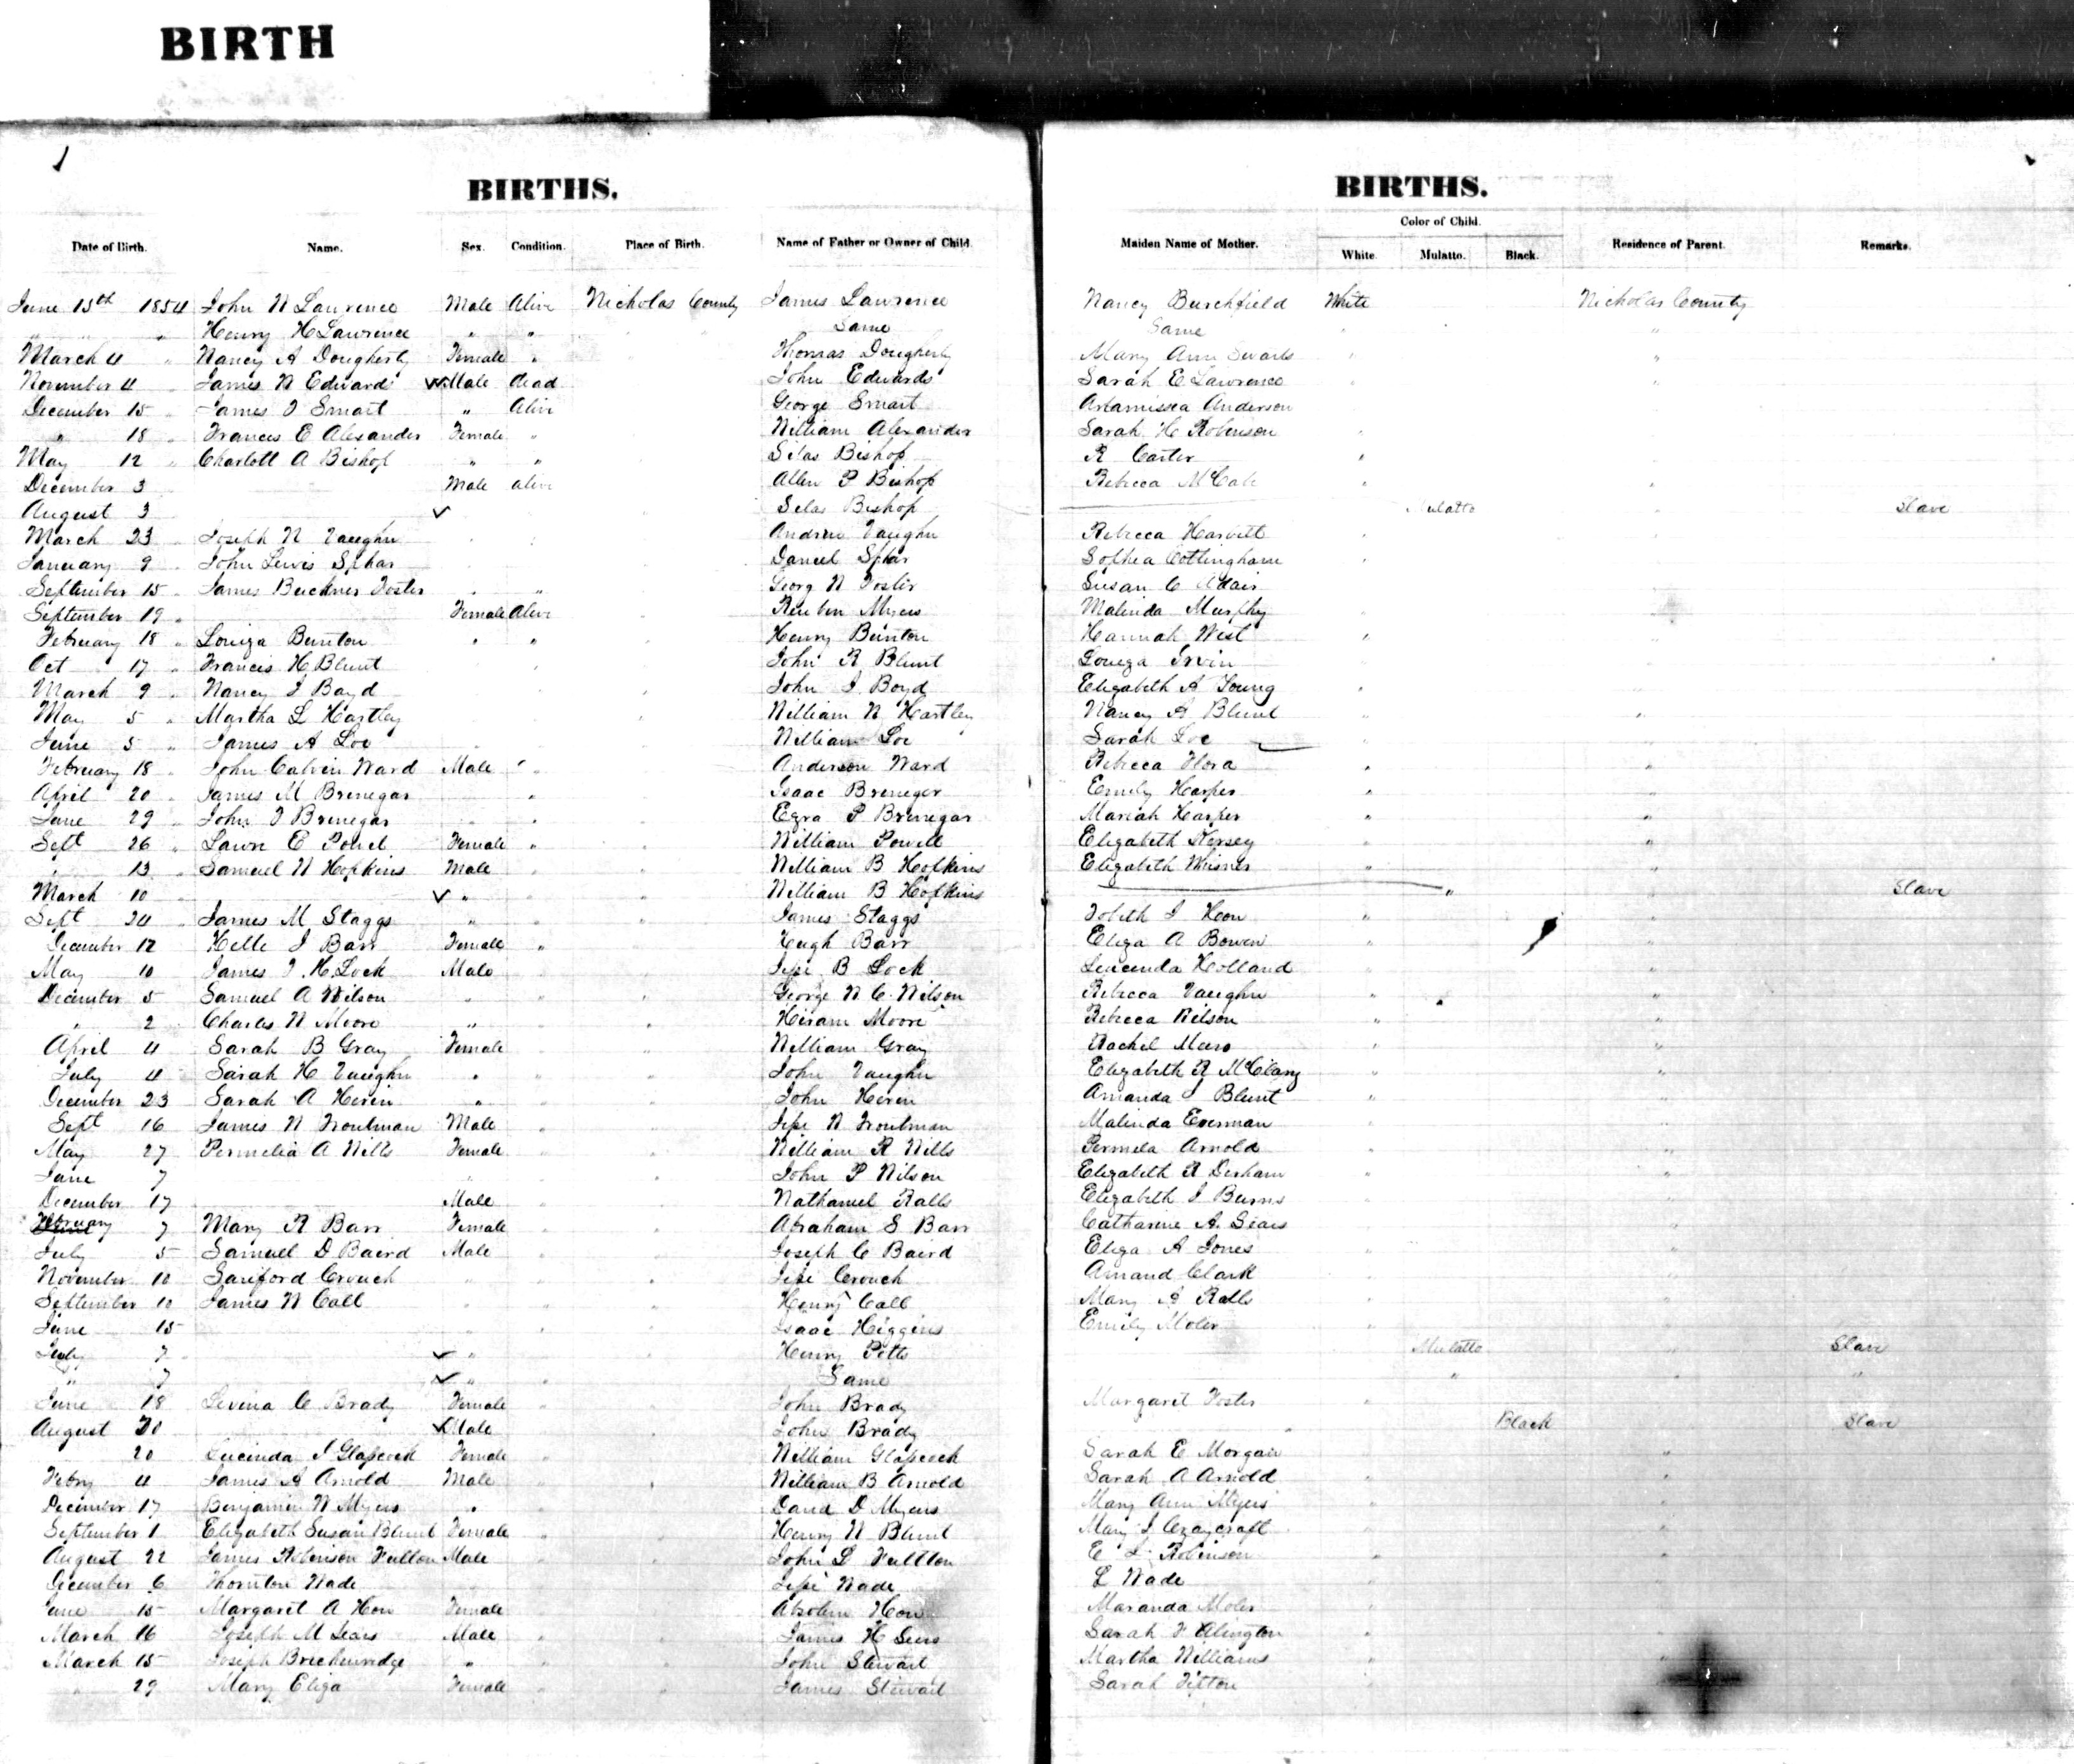 BIRTH
1
BIRTHS.
BIRTHS.
Date of Birth. Name. Sex. Condition. Place of Birth. Name of Father or Owner of Child. Maiden Name of Mother. Color of Child. White. Mulatto. Black. Residence of Parent. Remarks.
June 15th 1854 John W Lawrence Male Alive Nicholas County James Lawrence Nancy Burchfield White Nicholas County
" " " Henry H Lawrence " " Same Same "
March 4 " Nancy A Dougherty Female " Thomas Dougherty Mary Ann "
November 4 " James W Edwards Male dead John Edwards Sarah E Lawrence "
December 15 " James T Smart " Alive George Smart Artamissea Anderson
" 18 " Frances E Alexander Female " William Alexander Sarah H Robenson
May 12 " Charlott A Bishop " " Silas Bishop R Carter
December 3 Male alive Allen P Bishop Rebecca McCabe
August 3 Silas Bishop Mulatto Slave
March 23 " Joseph W Vaughn Andrew Vaughn Rebecca
January 9 " John Lewis Sphar Daniel Sphar Sophea Cottingham
September 15 " James Buckner Foster Georg W Foster Susan C Adair
September 19 " Female Alive Reuben Myers Malinda Murphy
February 18 " Louiza Bunton " " Henry Bunton Hannah West
Oct 17 " Francis H Blunt John R Blunt Loueza Irvin
March 9 " Nancy J Boyd John J Boyd Elizabeth A Young
May 5 " Martha L Hartley William W Hartley Nancy A Blunt
June 5 " James A Loe William Loe Sarah Loe
February 18 " John Calvin Ward Male " Anderson Ward Rebecca Flora
April 20 " James M Brenegar " Isaac Breneger Emily Harper
June 29 " John T Brenegar Ezra P Brenegar Mariah Harper
Sept 26 " Laura E Powel Female " William Powell Elizabeth Kersey
" 13 Samuel W Hopkins Male William B Hopkins Elizabeth Whisner
March 10 " William B Hopkins " Slave
Sept 24 " James M Staggs " James Staggs J Hon
December 12 Helle J Barr Female " Hugh Barr Eliza A Bowen
May 10 James T H Lock Male Jesse B Lock Lucenda Holland
December 5 Samuel A Wilson George W C Wilson Rebecca Vaughn
" 2 Charles W Moore " Hiram Moore Rebecca Wilson
April 4 Sarah B Gray Female William Gray Rachel
July 4 Sarah H Vaughn " John Vaughn Elizabeth R McClary
December 23 Sarah A Heren " John Heren Amanda J Blunt
Sept 16 James W Troutman Male Jesse W Troutman Malinda Everman
May 27 Permelia A Wills Female William R Wills Permela Arnold
June 7 John P Wilson Elizabeth R Derham
December 17 Male Nathaniel Ralls Elizabeth J Burns
February 7 Mary R Barr Female Abraham S Barr Catharine A. Sears
July 5 Samuel D Baird Male Joseph C Baird Eliza A Jones
November 10 Saniford Crouch Jesse Crouch Amand Clark
September 10 James W Call Henry Call Mary A Ralls
June 15 Isaac Higgins Emily Moler
July 7 " Henry Potts Mulatto Slave
" 7 " Same " "
June 18 Levina C Brady Female John Brady Margaret Foster
August 20 Male John Brady Black Slave
20 Lucinda J Glasscock Female William Glasscock Sarah E Morgan
Febry 4 James A Arnold Male William B Arnold Sarah A Arnold
December 17 Benjamin W Myers " David D Myers Mary Ann Myers
September 1 Elizabeth Susan Blunt Female Henry W Blunt Mary J Craycraft
August 22 James Robinson Fulton Male John L Fultton E L Robinson
December 6 Thornton Wade Jesse Wade L Wade
June 15 Margaret A Hon Female Absolem Hon Maranda Moler
March 16 Joseph M Sears Male James H Seers Sarah F Alington
March 15 Joseph Breckenridge " John Stewart Martha Williams
29 Mary Eliza Female James Stewart Sarah Tipton